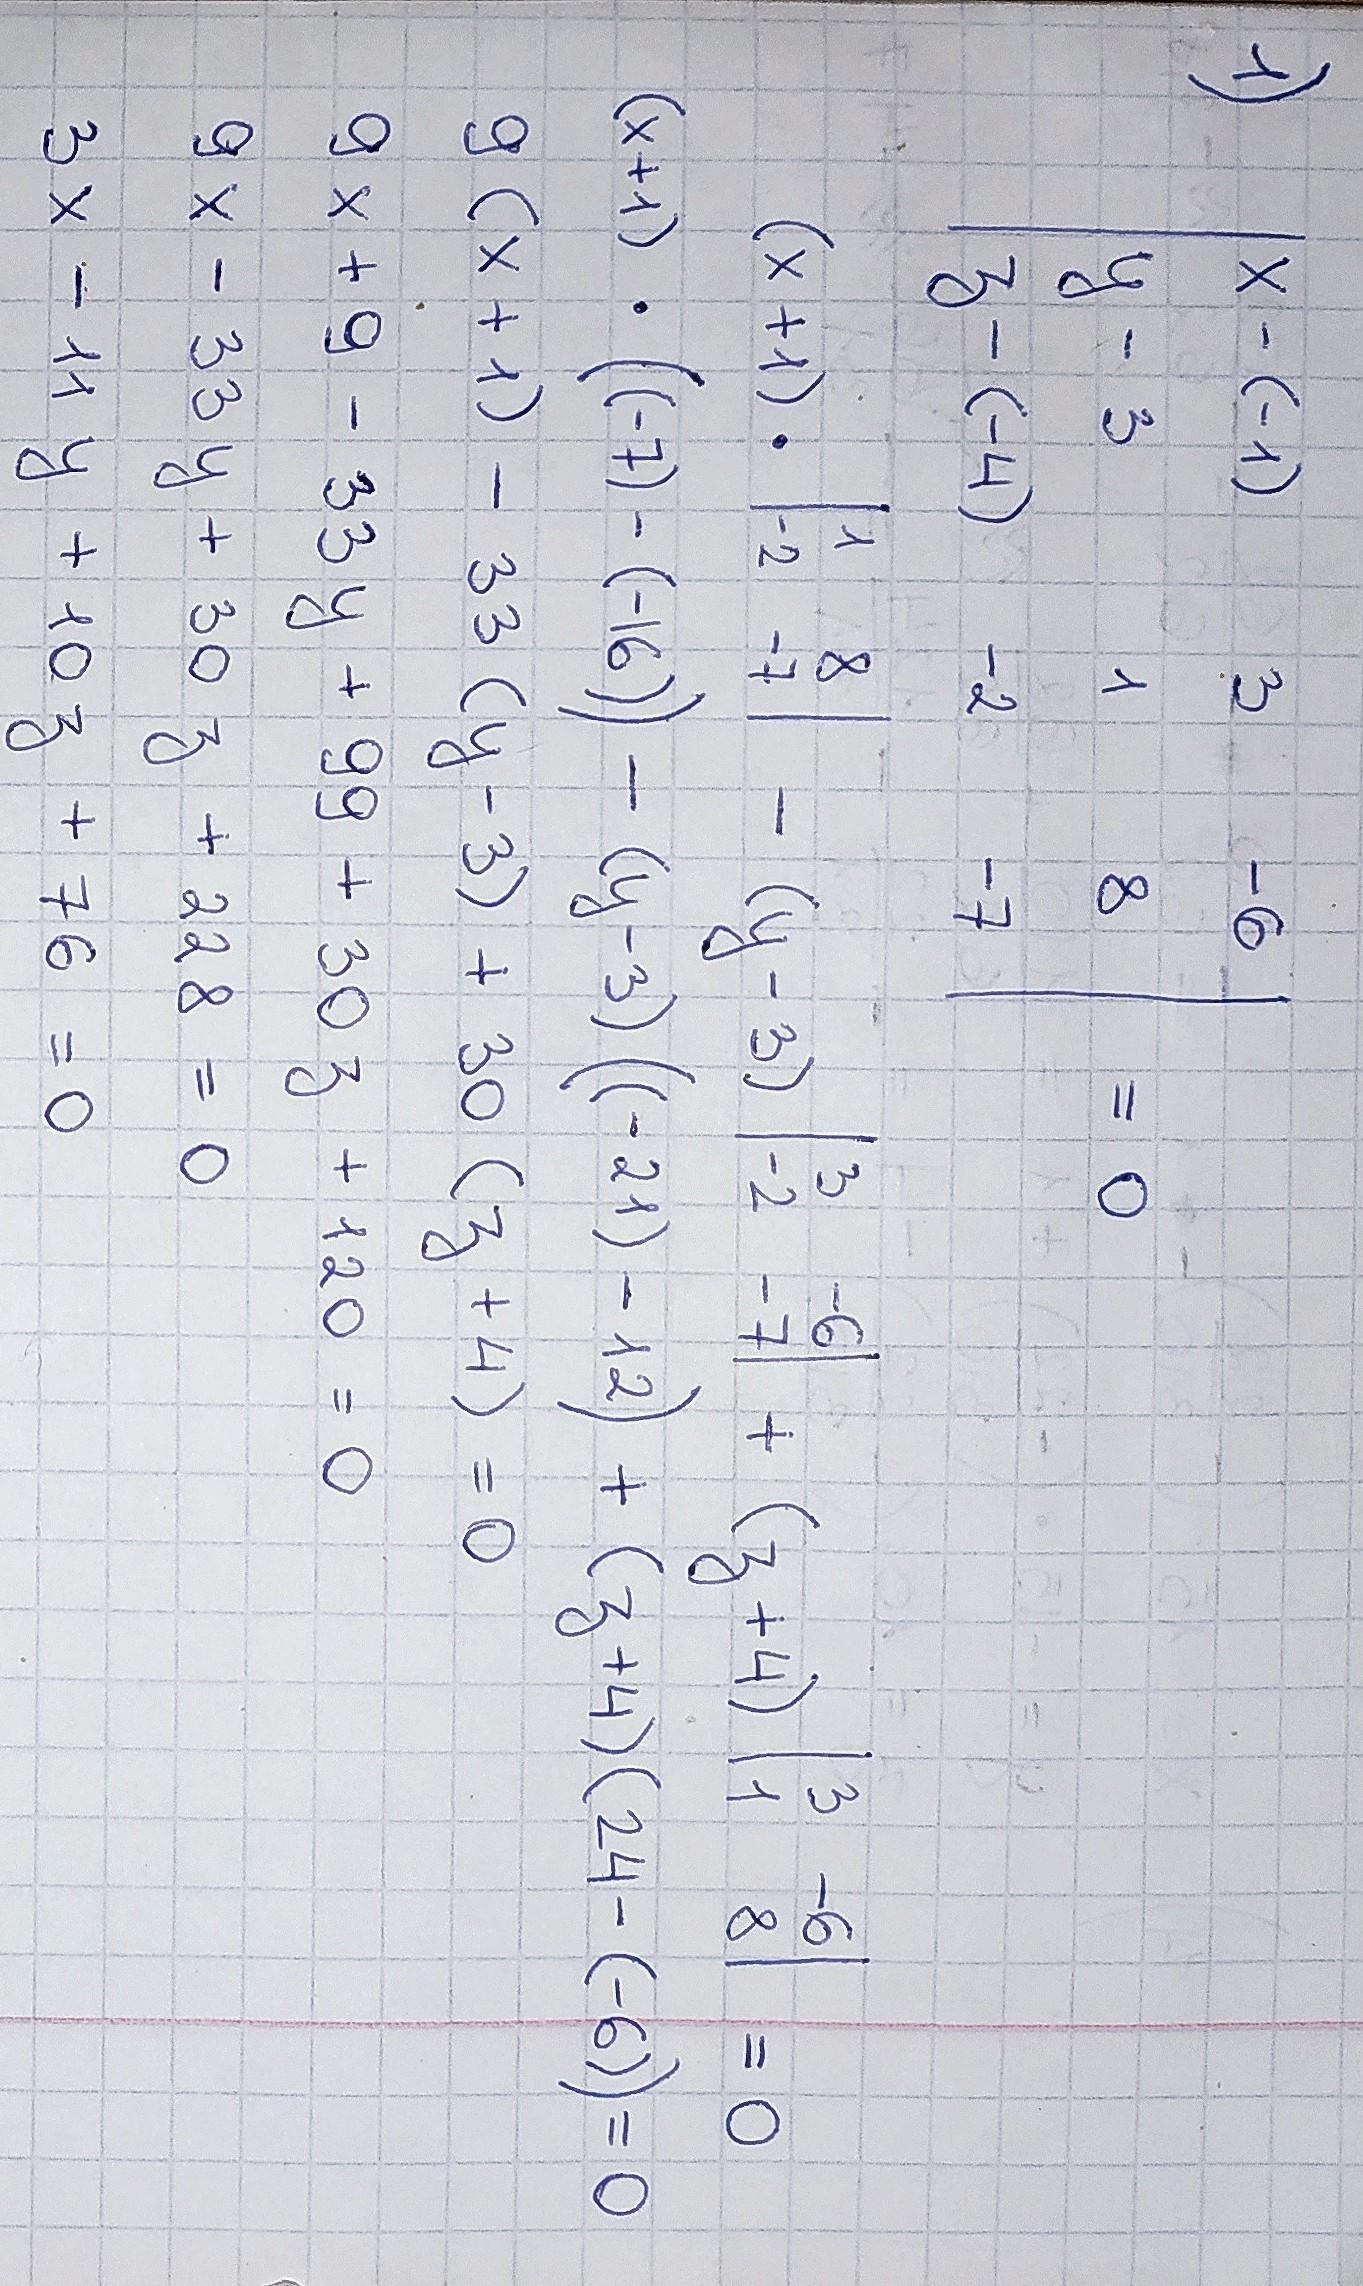 1)
| x-(-1) 3 -6 |
| y - 3 1 8 | = 0
| z-(-4) -2 -7 |
(x+1) · | 1 8 | - (y-3) | 3 -6 | + (z+4) | 3 -6 | = 0
| -2 -7 | | -2 -7 | | 1 8 |
(x+1) · ((-7)-(-16)) - (y-3)((-21)-12) + (z+4)(24-(-6)) = 0
9(x+1) - 33(y-3) + 30(z+4) = 0
9x + 9 - 33y + 99 + 30z + 120 = 0
9x - 33y + 30z + 228 = 0
3x - 11y + 10z + 76 = 0